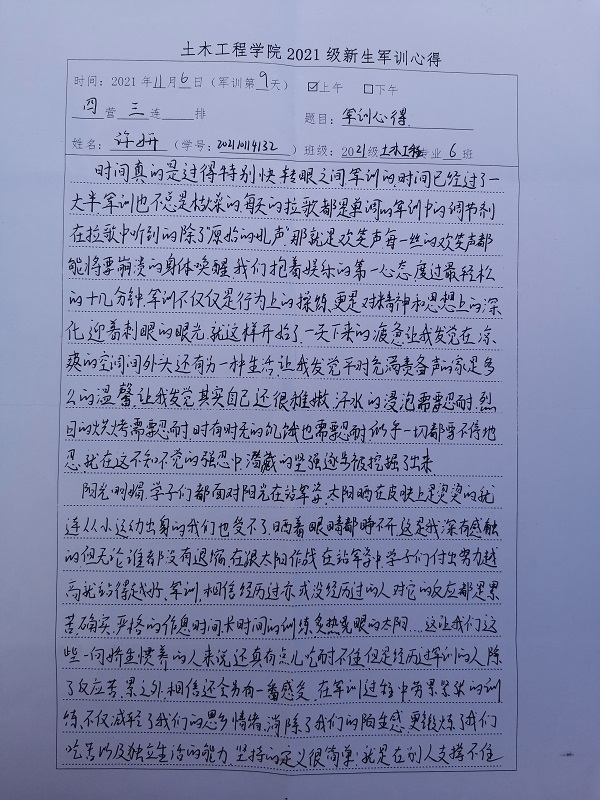 土木工程学院 2021 级新生军训心得
时间：2021 年 11 月 6 日（军训第 9 天） ☑上午 □下午
四 营 三 连 排 题目：军训心得.
姓名：许妍 （学号：20210114132 ）班级：2021级土木工程专业 6 班
时间真的是过得特别快转眼之间军训的时间已经过了一
大半军训也不总是枯燥的每天的拉歌都是单调的军训中的调节剂
在拉歌中听到的除了"原始的吼声"那就是欢笑声每一丝的欢笑声都
能将要崩溃的身体唤醒我们抱着娱乐的第一心态度过最轻松
的十几分钟.军训不仅仅是行为上的操练.更是对精神和思想上的深
化.迎着刺眼的眼光.就这样开始了.一天下来的疲惫让我发觉在凉
爽的空间间外头还有另一种生活.让我发觉平时充满责备声的家是多
么的温馨.让我发觉其实自己还很稚嫩.汗水的浸泡需要忍耐.烈
日的烘烤需要忍耐.时有时无的饥饿也需要忍耐似乎一切都要不停地
忍.就在这不知不觉的强忍中.潜藏的坚强逐步被挖掘了出来.
阳光明媚.学子们都面对阳光在站军姿.太阳晒在皮肤上是烫烫的就
连从小运动出身的我们也受不了.晒着眼睛都睁不开这是我深有感触
的但无论谁都没有退缩在跟太阳作战在站军姿中学子们付出努力越
高就站得越好.军训.相信经历过亦或没经历过的人对它的反应都是累
苦确实.严格的作息时间.长时间的训练炙热晃眼的太阳....这让我们这
些一向娇生惯养的人来说还真有点儿吃耐不住但是经历过军训的人.除
了反应苦.累之外.相信还会另有一番感受.在军训过程中劳累紧张的训
练.不仅减轻了我们的思乡情绪.消除了我们的陌生感.更锻炼了我们
吃苦以及独立生活的能力.坚持的定义很简单.就是在别人支撑不住